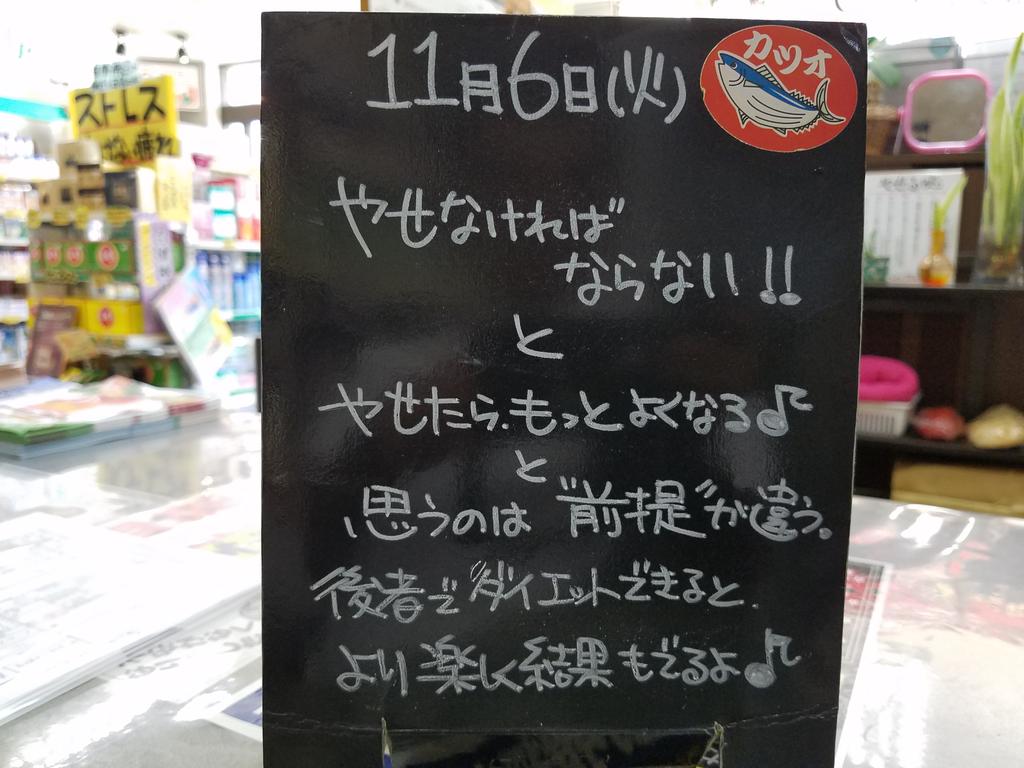 11月6日(火)
カツオ
やせなければ
ならない!!
と
やせたら、もっとよくなる♪
と
思うのは“前提”が違う。
後者でダイエットできると、
より楽しく結果もでるよ♪
ストレス
疲れ